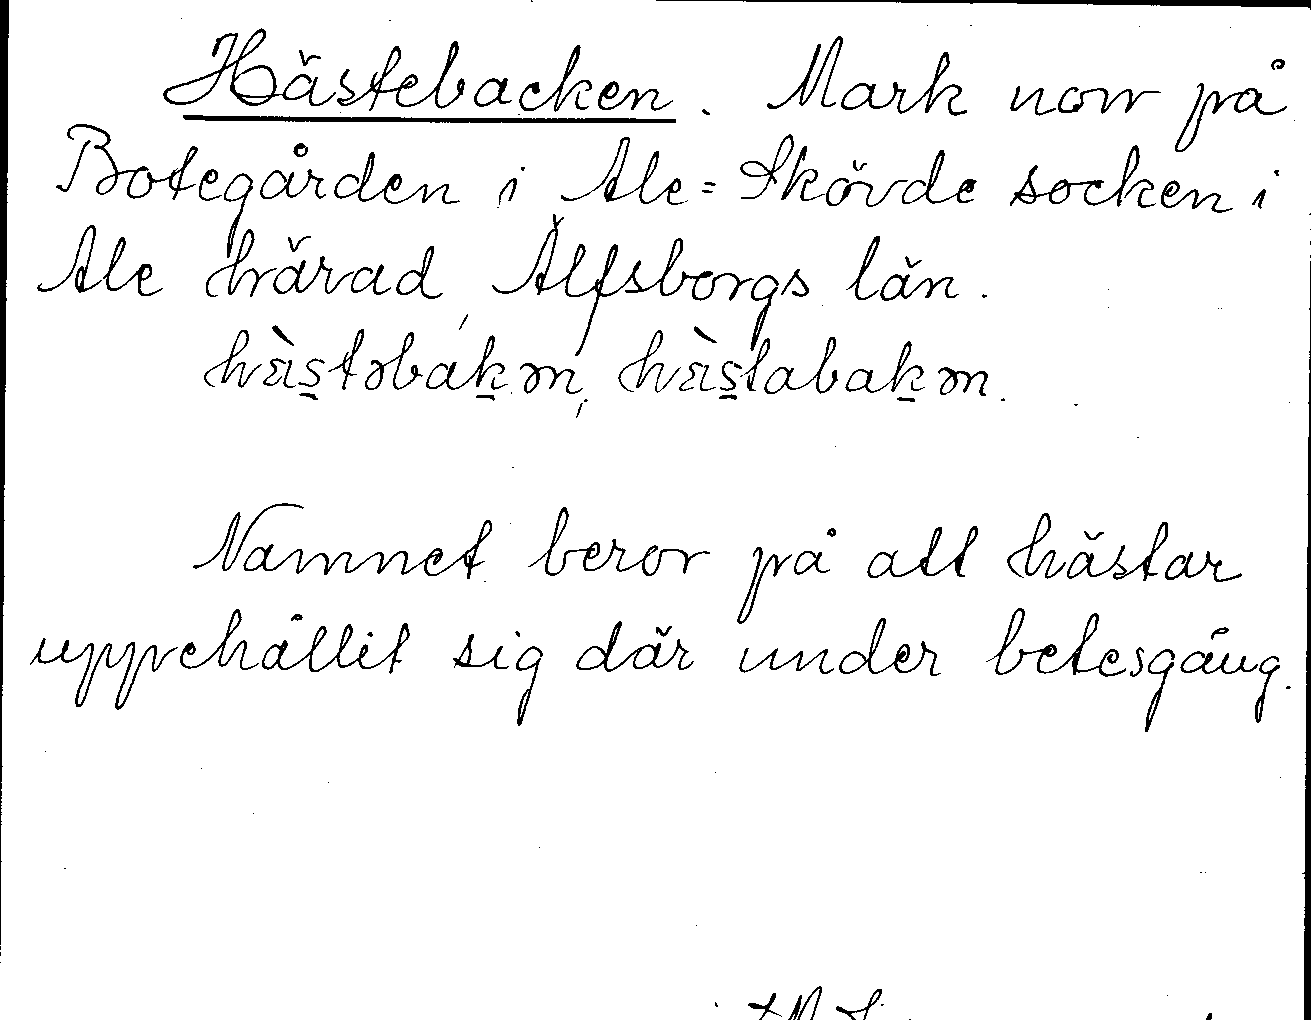 Hästebacken. Mark norr på
Botegården i Ale=Skövde socken i
Ale härad, Älfsborgs län.
hästəbakən, hästabakən.
Namnet beror på att hästar
uppehållit sig där under betesgång.